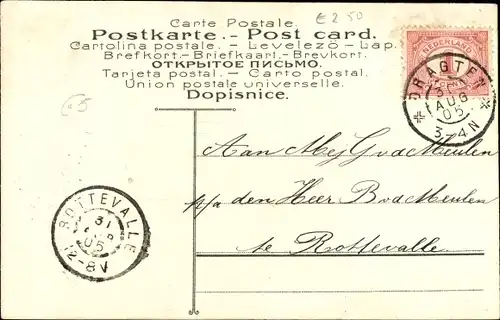 Carte Postale.
€ 2 50
Postkarte. - Post card.
Cartolina postale. - Levelező-Lap.
Brefkort.-Briefkaart.-Brevkort.
ОТКРЫТОЕ ПИСЬМО.
Tarjeta postal. - Carto postal.
Union postale universelle.
Dopisnice.
NEDERLAND
DRAGTEN
31 AUG 05
3-4N
Aan Mej G v d Meulen
p/a den Heer B v d Meulen
te Rottevalle
ROTTEVALLE
31
05
12-8V